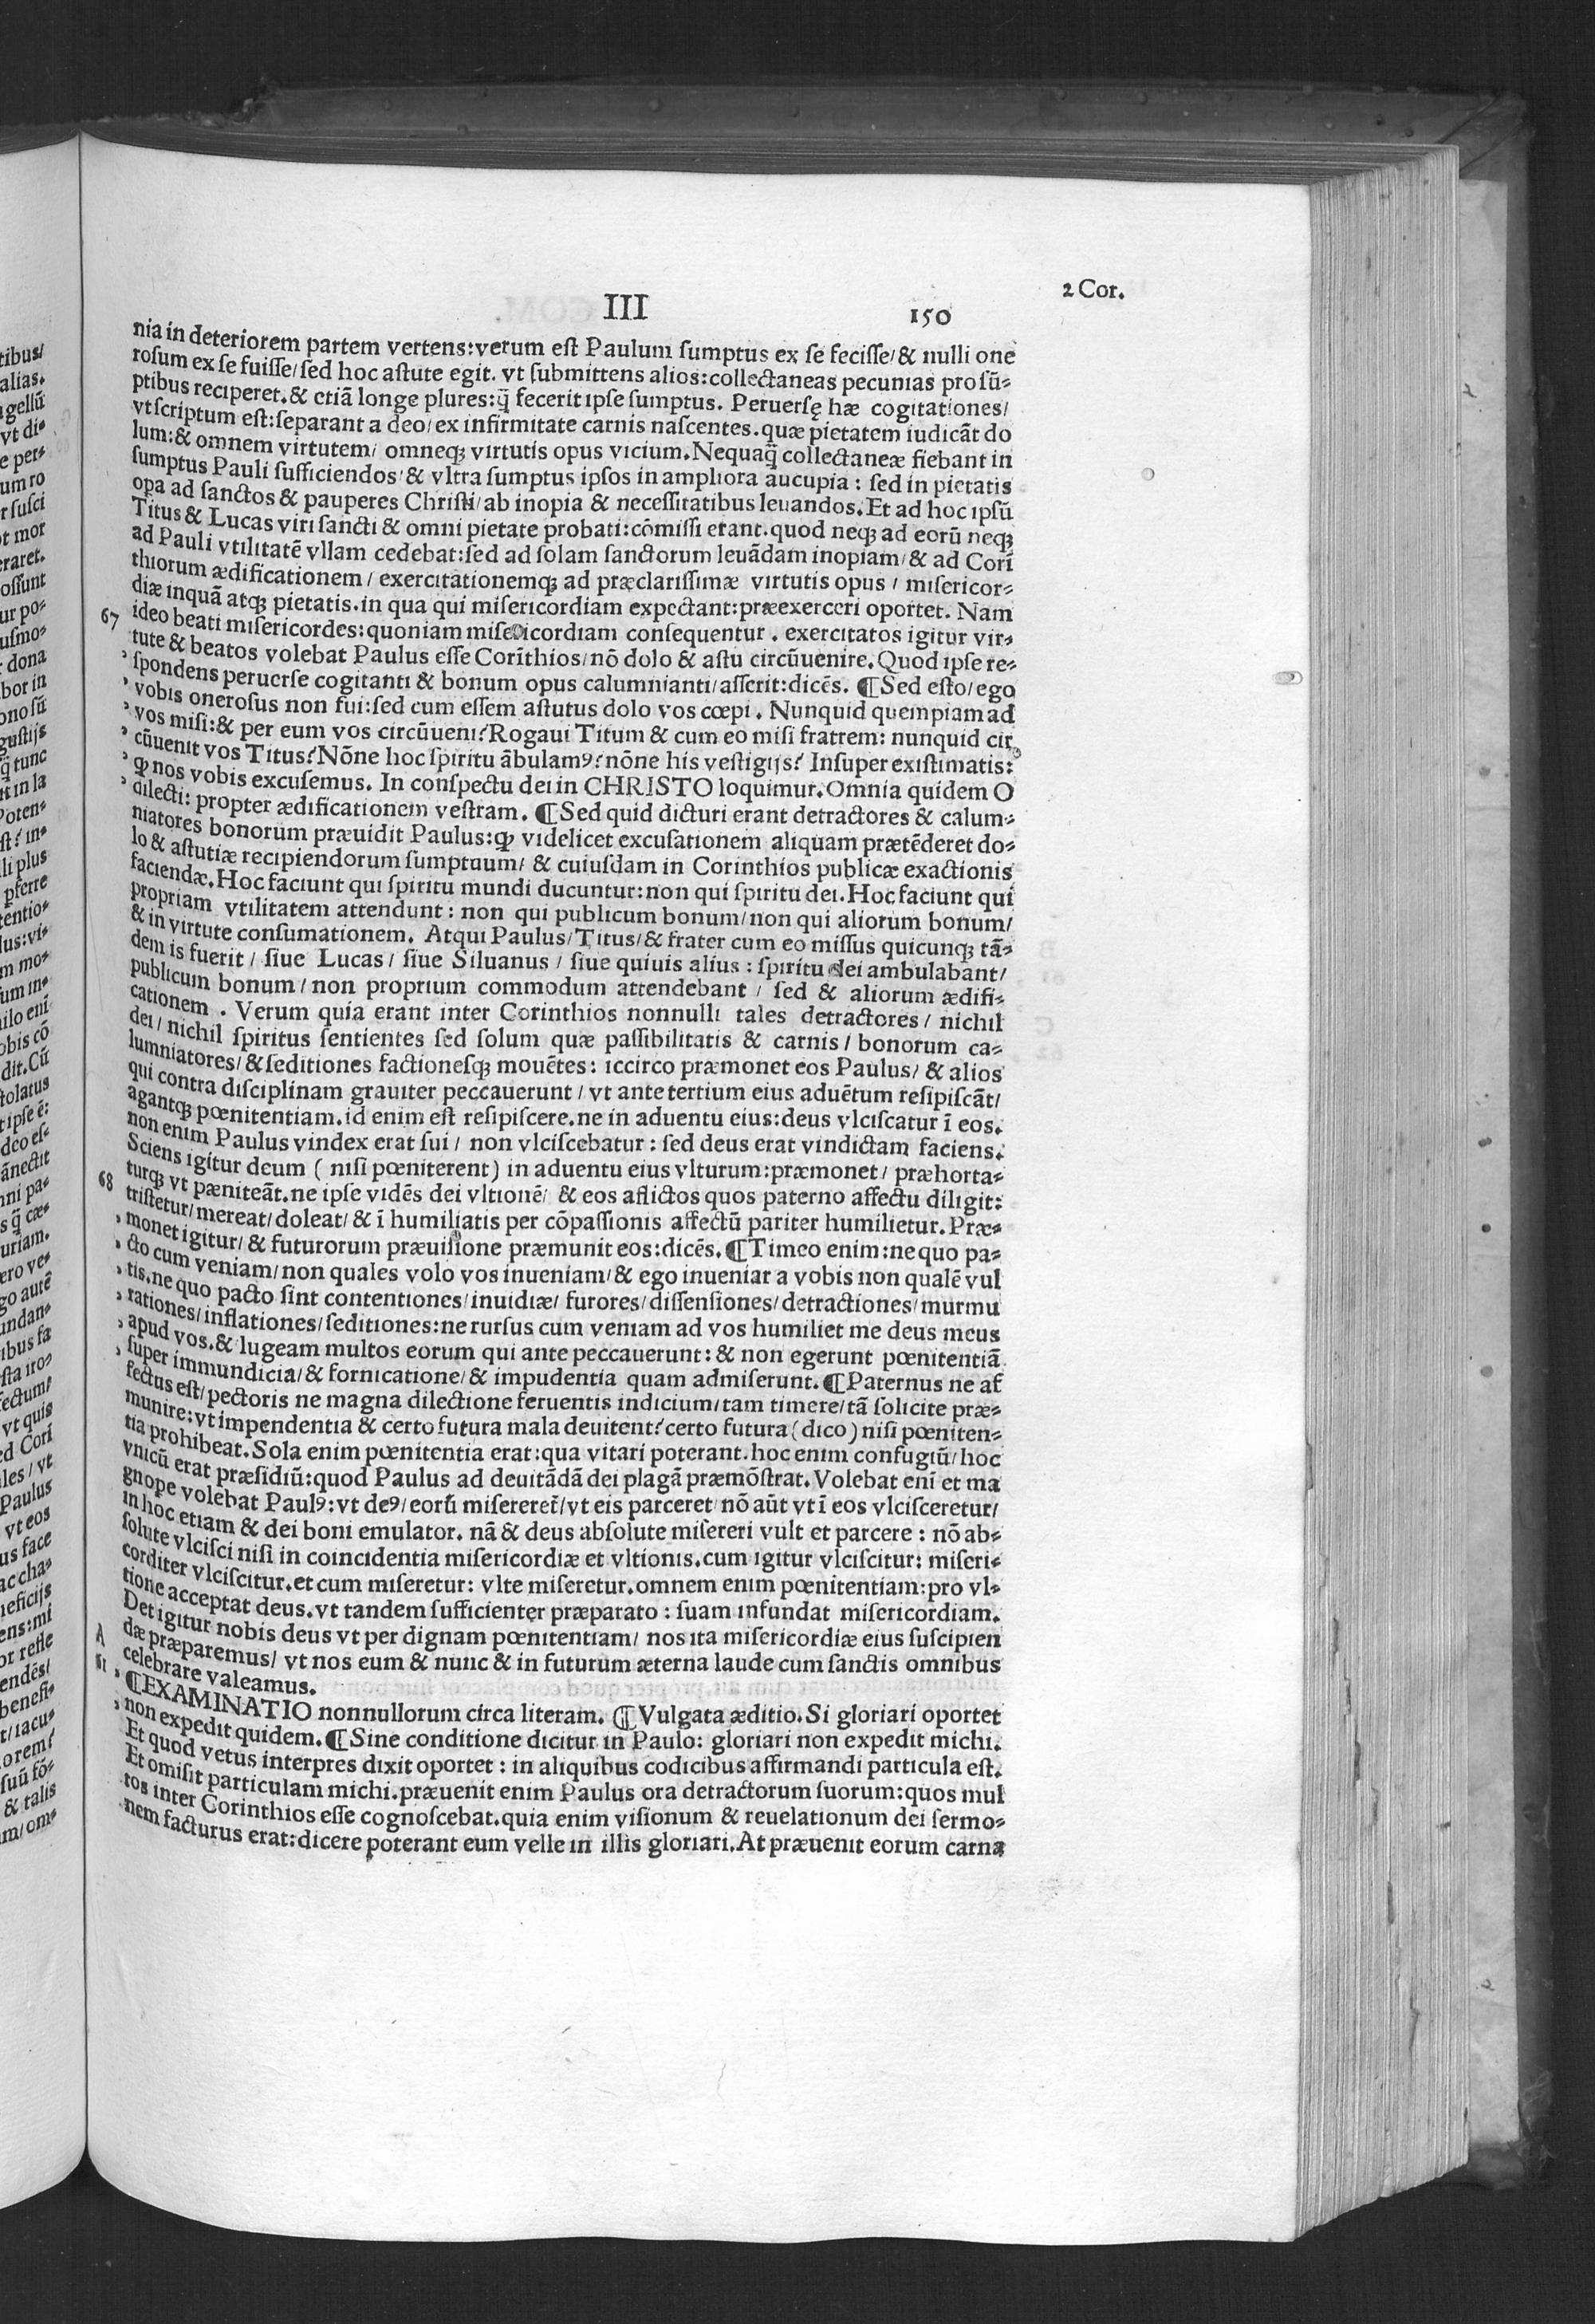 2 Cor.
III 150
nia in deteriorem partem vertens: verum est Paulum sumptus ex se fecisse/ & nulli one
rosum ex se fuisse/ sed hoc astute egit. vt submittens alios: collectaneas pecunias pro sũ-
ptibus reciperet. & etiã longe plures: q̃ fecerit ipse sumptus. Peruersę hæ cogitationes/
vt scriptum est: separant a deo/ ex infirmitate carnis nascentes. quæ pietatem iudicãt do
lum: & omnem virtutem/ omneqꝫ virtutis opus vicium. Nequaq̃ collectaneæ fiebant in
sumptus Pauli sufficiendos/ & vltra sumptus ipsos in ampliora aucupia: sed in pietatis
opa ad sanctos & pauperes Christi/ ab inopia & necessitatibus leuandos. Et ad hoc ipsũ
Titus & Lucas viri sancti & omni pietate probati: cõmissi erant. quod neqꝫ ad eorũ neqꝫ
ad Pauli vtilitatẽ vllam cedebat: sed ad solam sanctorum leuãdam inopiam/ & ad Corĩ
thiorum ædificationem/ exercitationemqꝫ ad præclarissimæ virtutis opus/ misericor-
diæ inquã atqꝫ pietatis. in qua qui misericordiam expectant: præexerceri oportet. Nam
67 ideo beati misericordes: quoniam misericordiam consequentur. exercitatos igitur vir-
tute & beatos volebat Paulus esse Corĩthios/ nõ dolo & astu circũuenire. Quod ipse re-
, spondens peruerse cogitanti & bonum opus calumnianti/ asserit: dicẽs. ¶Sed esto/ ego
, vobis onerosus non fui: sed cum essem astutus dolo vos cœpi. Nunquid quempiam ad
, vos misi: & per eum vos circũueni? Rogaui Titum & cum eo misi fratrem: nunquid cir
, cũuenit vos Titus? Nõne hoc spiritu ãbulamꝰ? nõne his vestigijs? Insuper existimatis:
, ꝙ nos vobis excusemus. In conspectu dei in CHRISTO loquimur. Omnia quidem O
, dilecti: propter ædificationem vestram. ¶Sed quid dicturi erant detractores & calum-
niatores bonorum præuidit Paulus: ꝙ videlicet excusationem aliquam prætẽderet do-
lo & astutiæ recipiendorum sumptuum/ & cuiusdam in Corinthios publicæ exactionis
faciendæ. Hoc faciunt qui spiritu mundi ducuntur: non qui spiritu dei. Hoc faciunt qui
propriam vtilitatem attendunt: non qui publicum bonum/ non qui aliorum bonum/
& in virtute consumationem. Atqui Paulus/ Titus/ & frater cum eo missus quicunqꝫ tã-
dem is fuerit/ siue Lucas/ siue Siluanus/ siue quiuis alius: spiritu dei ambulabant/
publicum bonum/ non proprium commodum attendebant/ sed & aliorum ædifi-
cationem. Verum quia erant inter Corinthios nonnulli tales detractores/ nichil
dei/ nichil spiritus sentientes sed solum quæ passibilitatis & carnis/ bonorum ca-
lumniatores/ & seditiones factionesqꝫ mouẽtes: iccirco præmonet eos Paulus/ & alios
qui contra disciplinam grauiter peccauerunt/ vt ante tertium eius aduẽtum resipiscãt/
agantqꝫ pœnitentiam. id enim est resipiscere. ne in aduentu eius: deus vlciscatur ĩ eos.
non enim Paulus vindex erat sui/ non vlciscebatur: sed deus erat vindictam faciens.
Sciens igitur deum ( nisi pœniterent) in aduentu eius vlturum: præmonet/ præhorta-
68 turqꝫ vt pæniteãt. ne ipse vidẽs dei vltionẽ/ & eos aflictos quos paterno affectu diligit:
tristetur/ mereat/ doleat/ & ĩ humiliatis per cõpassionis affectũ pariter humilietur. Præ-
, monet igitur/ & futurorum præuisione præmunit eos: dicẽs. ¶Timeo enim: ne quo pa-
, cto cum veniam/ non quales volo vos inueniam/ & ego inueniar a vobis non qualẽ vul
, tis. ne quo pacto sint contentiones/ inuidiæ/ furores/ dissensiones/ detractiones/ murmu
, rationes/ inflationes/ seditiones: ne rursus cum veniam ad vos humiliet me deus meus
, apud vos. & lugeam multos eorum qui ante peccauerunt: & non egerunt pœnitentiã
, super immundicia/ & fornicatione/ & impudentia quam admiserunt. ¶Paternus ne af
fectus est/ pectoris ne magna dilectione feruentis indicium/ tam timere/ tã solicite præ-
munire: vt impendentia & certo futura mala deuitent? certo futura (dico) nisi pœniten-
tia prohibeat. Sola enim pœnitentia erat: qua vitari poterant. hoc enim confugiũ/ hoc
vnicũ erat præsidiũ: quod Paulus ad deuitãdã dei plagã præmõstrat. Volebat enĩ et ma
gnope volebat Paulꝰ: vt deꝰ/ eorũ misereret̃/ vt eis parceret/ nõ aũt vt ĩ eos vlcisceretur/
in hoc etiam & dei boni emulator. nã & deus absolute misereri vult et parcere: nõ ab-
solute vlcisci nisi in coincidentia misericordiæ et vltionis. cum igitur vlciscitur: miseri-
corditer vlciscitur. et cum miseretur: vlte miseretur. omnem enim pœnitentiam: pro vl-
tione acceptat deus. vt tandem sufficienter præparato: suam infundat misericordiam.
Det igitur nobis deus vt per dignam pœnitentiam/ nos ita misericordiæ eius suscipien
A dæ præparemus/ vt nos eum & nunc & in futurum æterna laude cum sanctis omnibus
celebrare valeamus.
61 , ¶EXAMINATIO nonnullorum circa literam. ¶Vulgata æditio. Si gloriari oportet
, non expedit quidem. ¶Sine conditione dicitur in Paulo: gloriari non expedit michi.
Et quod vetus interpres dixit oportet: in aliquibus codicibus affirmandi particula est.
Et omisit particulam michi. præuenit enim Paulus ora detractorum suorum: quos mul
tos inter Corinthios esse cognoscebat. quia enim visionum & reuelationum dei sermo-
nem facturus erat: dicere poterant eum velle in illis gloriari. At præuenit eorum carna